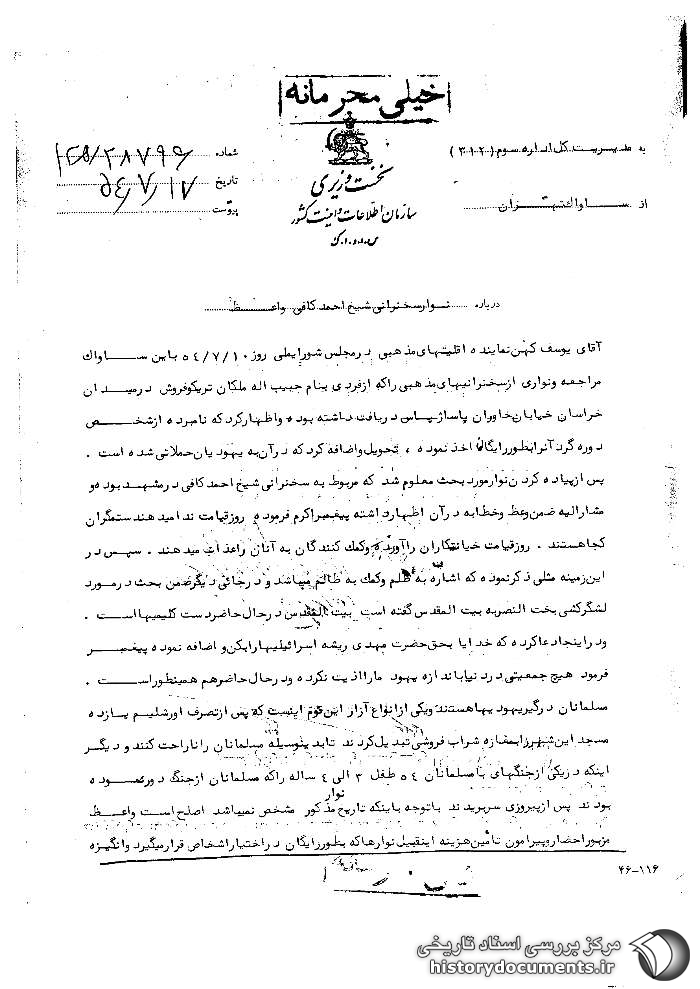 خیلی محرمانه
به مدیریت کل اداره سوم (۳۱۲)
از ساواک تهران
نخست وزیری
سازمان اطلاعات و امنیت کشور
س.ا.و.ا.ک
شماره
تاریخ ۵۴/۷/۱۷
پیوست
درباره نوار سخنرانی شیخ احمد کافی واعظ
آقای یوسف کهن نماینده اقلیتهای مذهبی در مجلس شورایملی روز ۵۴/۷/۱۰ باین ساواک
مراجعه و نواری از سخنرانیهای مذهبی را که از فردی بنام حبیب اله ملکان تریکوفروش در میدان
خراسان خیابان خاوران پاساژ یاس دریافت داشته بوده و اظهار کرد که نامبرده از شخص
دوره گرد آنرا بطور رایگان اخذ نموده ، تحویل و اضافه کرد که در آن به یهودیان حملاتی شده است .
پس از پیاده کردن نوار مورد بحث معلوم شد که مربوط به سخنرانی شیخ احمد کافی در مشهد بوده و
مشارالیه ضمن وعظ و خطابه در آن اظهار داشته پیغمبر اکرم فرموده روز قیامت ندا میدهند ستمگران
کجا هستند . روز قیامت خیانتکاران را آورده و کمک کنندگان به آنان را عذاب میدهند . سپس در
این زمینه مثلی ذکر نموده که اشاره به ظلم و کمک به ظالم میباشد و در جائی دیگر ضمن بحث در مورد
لشگرکشی بخت النصر به بیت المقدس گفته است بیت المقدس در حال حاضر دست کلیمیها است .
و در اینجا دعا کرده که خدایا بحق حضرت مهدی ریشه اسرائیلیها را بکن و اضافه نموده پیغمبر
فرمود هیچ جمعیتی در دنیا باندازه یهود ما را اذیت نکرده و در حال حاضر هم همینطور است .
مسلمانان درگیر یهودیها هستند و یکی از انواع آزار این قوم اینست که پس از تصرف اورشلیم یازده
مسجد این شهر را بمغازه شراب فروشی تبدیل کردند تا بدینوسیله مسلمانان را ناراحت کنند و دیگر
اینکه در یکی از جنگهای با مسلمانان ۵۴ طفل ۳ الی ۴ ساله را که مسلمانان از جنگ دور نموده
بودند پس از پیروزی سر بریدند با توجه باینکه تاریخ نوار مذکور مشخص نمیباشد اصلح است واعظ
مزبور احضار و پیرامون تأمین هزینه اینقبیل نوارها که بطور رایگان در اختیار اشخاص قرار میگیرد و انگیزه
۴۶-۱۱۶
مرکز بررسی اسناد تاریخی
historydocuments.ir